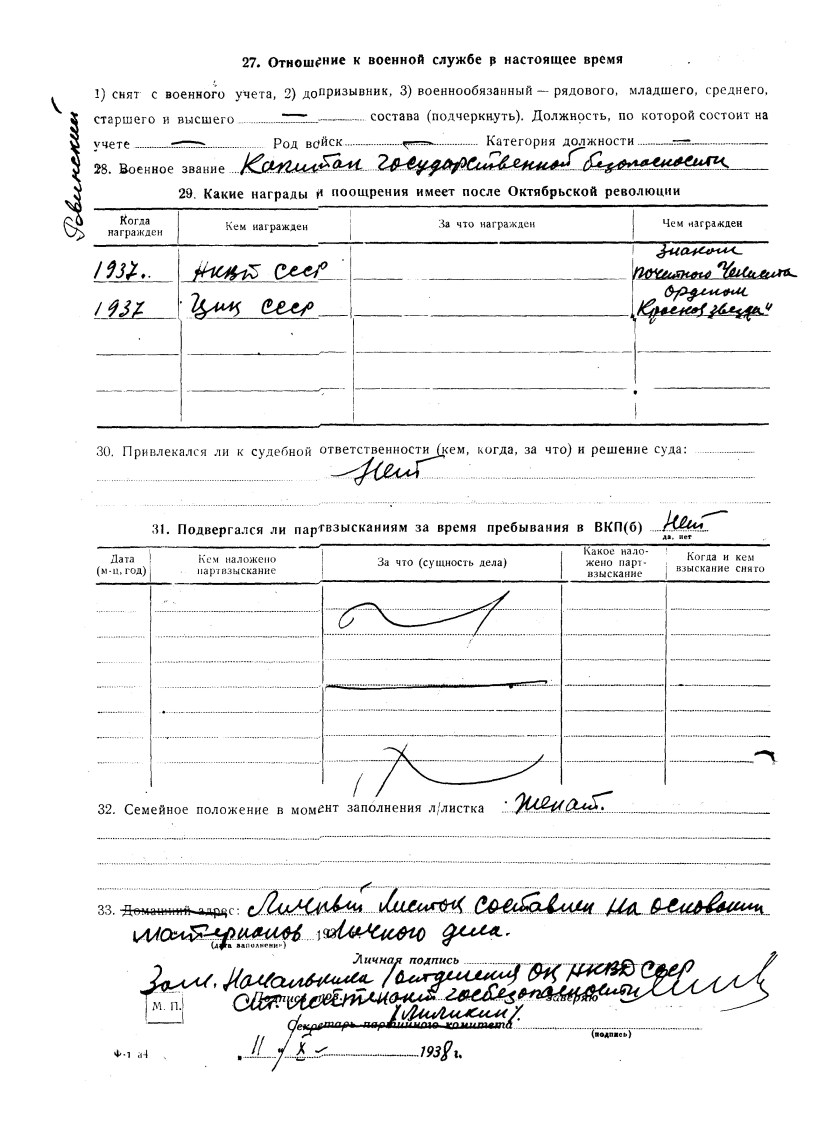 27. Отношение к военной службе в настоящее время
1) снят с военного учета, 2) допризывник, 3) военнообязанный — рядового, младшего, среднего,
старшего и высшего — состава (подчеркнуть). Должность, по которой состоит на
учете — Род войск — Категория должности —
Ровинский
28. Военное звание Капитан государственной безопасности
29. Какие награды и поощрения имеет после Октябрьской революции
Когда награжден Кем награжден За что награжден Чем награжден
1937. НКВД СССР Знаком
почетного Чекиста
1937 ЦИК СССР Орденом
„Красной звезды"
30. Привлекался ли к судебной ответственности (кем, когда, за что) и решение суда:
Нет
31. Подвергался ли партвзысканиям за время пребывания в ВКП(б) Нет
да, нет
Дата (м-ц, год) Кем наложено партвзыскание За что (сущность дела) Какое наложено партвзыскание Когда и кем взыскание снято
32. Семейное положение в момент заполнения л/листка Женат.
33. Домашний адрес: Личный листок составлен на основании
материалов 193 личного дела.
(дата заполнения)
Личная подпись
Зам. Начальника отделения ОК НКВД СССР
Ст. лейтенант госбезопасности
заверяю
М. П.
Секретарь партийного комитета
(подпись)
Ф-1 а4 11/X – 1938 г.